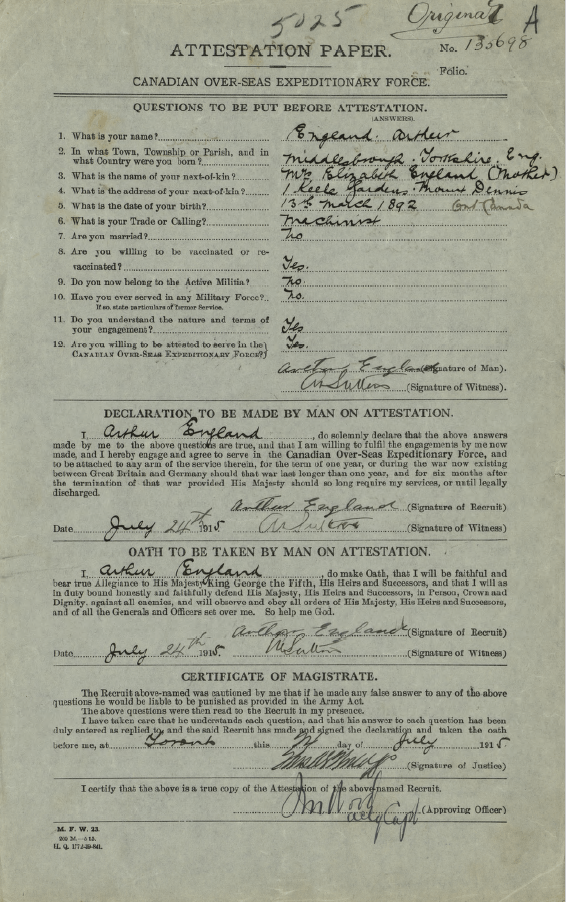 5025
Original A
ATTESTATION PAPER.
No. 135698
Folio.
CANADIAN OVER-SEAS EXPEDITIONARY FORCE.
QUESTIONS TO BE PUT BEFORE ATTESTATION.
(ANSWERS).
1. What is your name? England. Arthur
2. In what Town, Township or Parish, and in
what Country were you born? Middlesbrough. Yorkshire. Eng.
3. What is the name of your next-of-kin? Mrs Elizabeth England (Mother)
4. What is the address of your next-of-kin? 1 Keele Gardens. Mount Dennis
Ont Canada
5. What is the date of your birth? 13th March 1892
6. What is your Trade or Calling? Machinist
7. Are you married? No
8. Are you willing to be vaccinated or re-
vaccinated? Yes.
9. Do you now belong to the Active Militia? No.
10. Have you ever served in any Military Force? No.
If so, state particulars of former Service.
11. Do you understand the nature and terms of
your engagement? Yes
12. Are you willing to be attested to serve in the
CANADIAN OVER-SEAS EXPEDITIONARY FORCE? Yes.
Arthur England (Signature of Man).
(Signature of Witness).
DECLARATION TO BE MADE BY MAN ON ATTESTATION.
I, Arthur England, do solemnly declare that the above answers
made by me to the above questions are true, and that I am willing to fulfil the engagements by me now
made, and I hereby engage and agree to serve in the Canadian Over-Seas Expeditionary Force, and
to be attached to any arm of the service therein, for the term of one year, or during the war now existing
between Great Britain and Germany should that war last longer than one year, and for six months after
the termination of that war provided His Majesty should so long require my services, or until legally
discharged.
Arthur England (Signature of Recruit)
Date July 24th 1915 (Signature of Witness)
OATH TO BE TAKEN BY MAN ON ATTESTATION.
I, Arthur England, do make Oath, that I will be faithful and
bear true Allegiance to His Majesty King George the Fifth, His Heirs and Successors, and that I will as
in duty bound honestly and faithfully defend His Majesty, His Heirs and Successors, in Person, Crown and
Dignity, against all enemies, and will observe and obey all orders of His Majesty, His Heirs and Successors,
and of all the Generals and Officers set over me. So help me God.
Arthur England (Signature of Recruit)
Date July 24th 1915 (Signature of Witness)
CERTIFICATE OF MAGISTRATE.
The Recruit above-named was cautioned by me that if he made any false answer to any of the above
questions he would be liable to be punished as provided in the Army Act.
The above questions were then read to the Recruit in my presence.
I have taken care that he understands each question, and that his answer to each question has been
duly entered as replied to, and the said Recruit has made and signed the declaration and taken the oath
before me, at Toronto this day of July 1915
(Signature of Justice)
I certify that the above is a true copy of the Attestation of the above-named Recruit.
Capt (Approving Officer)
M. F. W. 23.
H. Q. 1772-39-841.